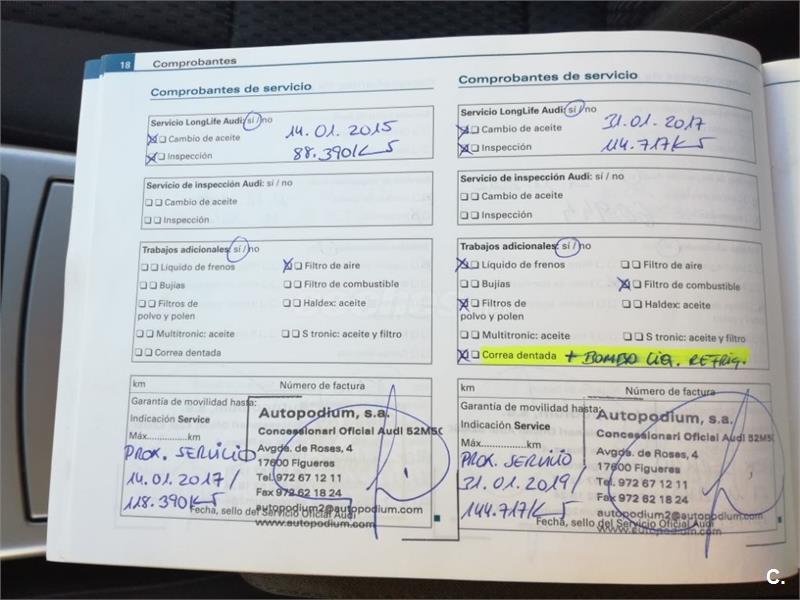 18 Comprobantes
Comprobantes de servicio
Servicio LongLife Audi: sí / no
Cambio de aceite 14.01.2015
Inspección 88.390 KS
Servicio de inspección Audi: sí / no
Cambio de aceite
Inspección
Trabajos adicionales: sí / no
Líquido de frenos Filtro de aire
Bujías Filtro de combustible
Filtros de Haldex: aceite
polvo y polen
Multitronic: aceite S tronic: aceite y filtro
Correa dentada
km Número de factura
Garantía de movilidad hasta:
Indicación Service
Máx...............km
PROX. SERVICIO
14.01.2017/
118.390 KS
Autopodium, s.a.
Concessionari Oficial Audi 52M50
Avgda. de Roses, 4
17600 Figueres
Tel. 972 67 12 11
Fax 972 62 18 24
autopodium2@autopodium.com
Fecha, sello del Servicio Oficial Audi
www.autopodium.com
Comprobantes de servicio
Servicio LongLife Audi: sí / no
Cambio de aceite 31.01.2017
Inspección 114.717 KS
Servicio de inspección Audi: sí / no
Cambio de aceite
Inspección
Trabajos adicionales: sí / no
Líquido de frenos Filtro de aire
Bujías Filtro de combustible
Filtros de Haldex: aceite
polvo y polen
Multitronic: aceite S tronic: aceite y filtro
Correa dentada + BOMBA LIQ. REFRIG.
km Número de factura
Garantía de movilidad hasta:
Indicación Service
Máx...............km
PROX. SERVICIO
31.01.2019/
144.717 KS
Autopodium, s.a.
Concessionari Oficial Audi 52M50
Avgda. de Roses, 4
17600 Figueres
Tel. 972 67 12 11
Fax 972 62 18 24
autopodium2@autopodium.com
Fecha, sello del Servicio Oficial Audi
www.autopodium.com
C.